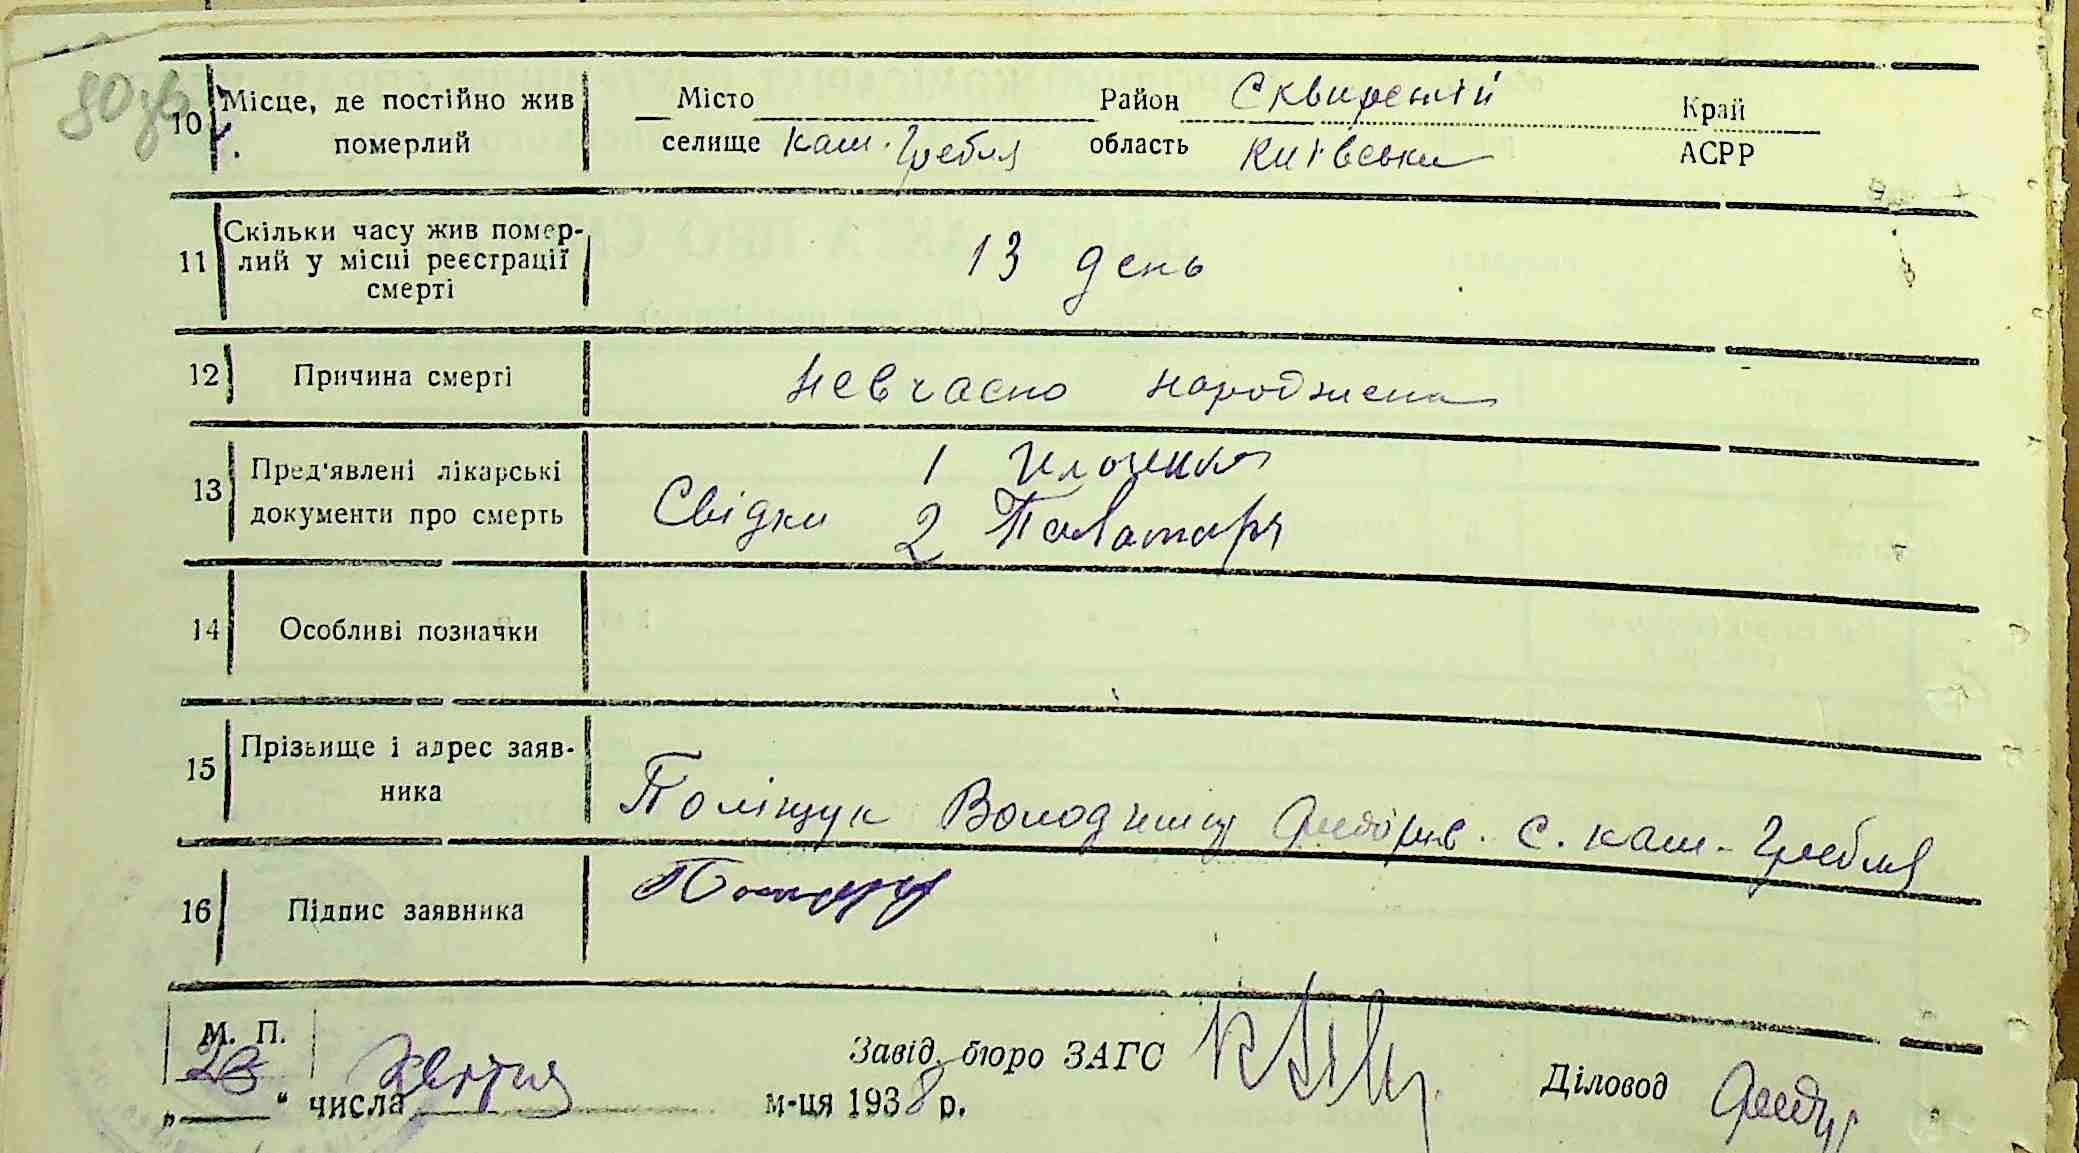 80 зв
10 Місце, де постійно жив померлий
Місто Район Сквирський Край
селище Каш. Гребля область Київська АСРР
11 Скільки часу жив помер-
лий у місці реєстрації
смерті
13 день
12 Причина смерті Невчасно народжена
13 Пред'явлені лікарські
документи про смерть
Свідки 1
2 Паламаря
14 Особливі позначки
15 Прізвище і адрес заяв-
ника
Поліщук Володимир с. Каш-Гребля
16 Підпис заявника
М. П.
Завід. бюро ЗАГС
Діловод
„ 23 “ числа квітня м-ця 1938 р.